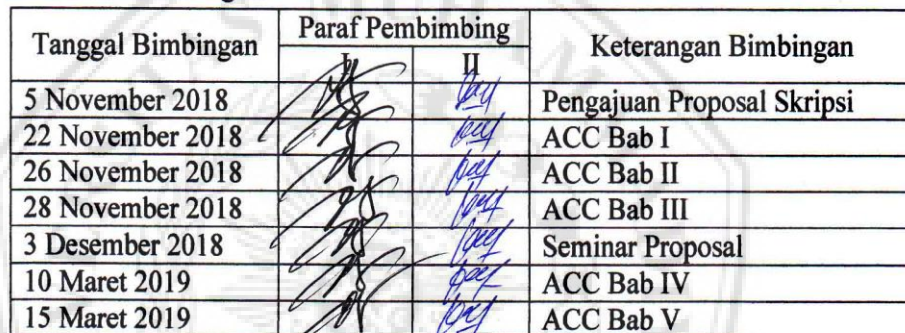 Tanggal Bimbingan Paraf Pembimbing Keterangan Bimbingan
I II
5 November 2018 Pengajuan Proposal Skripsi
22 November 2018 ACC Bab I
26 November 2018 ACC Bab II
28 November 2018 ACC Bab III
3 Desember 2018 Seminar Proposal
10 Maret 2019 ACC Bab IV
15 Maret 2019 ACC Bab V